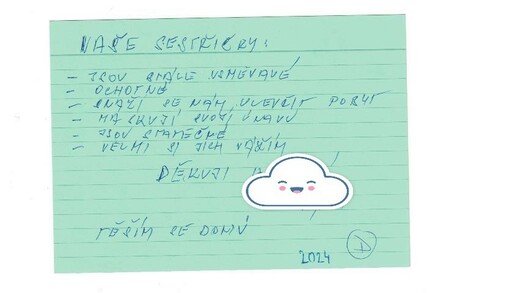 NAŠE SESTŘIČKY:
- JSOU STÁLE USMĚVAVÉ
- OCHOTNÉ
- SNAŽÍ SE NÁM ULEVČIT POBYT
- MASKUJÍ SVOJÍ ÚNAVU
- JSOU STATEČNÉ
- VELMI SI JICH VÁŽÍM
DĚKUJI
TĚŠÍM SE DOMŮ
2024